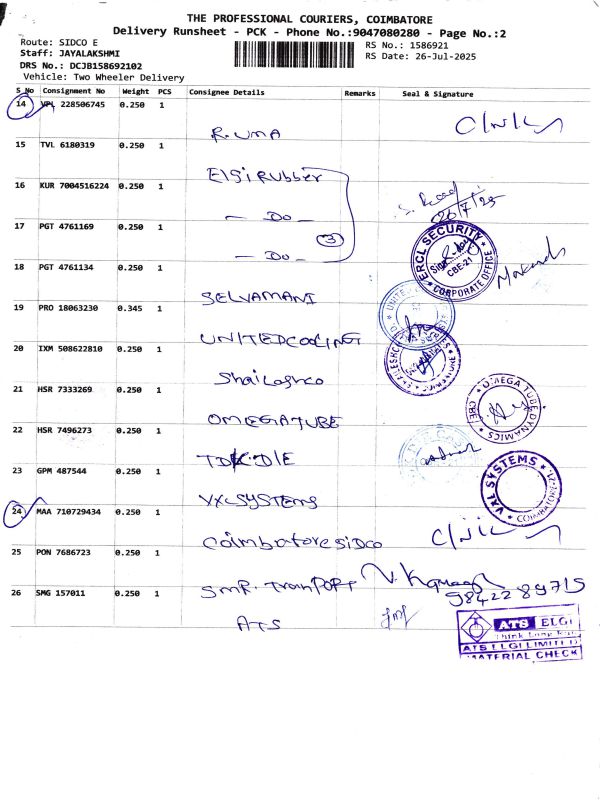 THE PROFESSIONAL COURIERS, COIMBATORE
Delivery Runsheet - PCK - Phone No.:9047080280 - Page No.:2
Route: SIDCO E
Staff: JAYALAKSHMI
DRS No.: DCJB158692102
Vehicle: Two Wheeler Delivery
RS No.: 1586921
RS Date: 26-Jul-2025
S No Consignment No Weight PCS Consignee Details Remarks Seal & Signature
14 VPL 228506745 0.250 1 R. UMA
15 TVL 6180319 0.250 1 Elgi Rubber
16 KUR 7004516224 0.250 1 - Do -
17 PGT 4761169 0.250 1 - Do - 3
26/7/25
ERCL SECURITY
CBE-21
CORPORATE OFFICE
18 PGT 4761134 0.250 1 SELVAMANI
19 PRO 18063230 0.345 1 UNITEDCOOLING
20 IXM 508622810 0.250 1 Shailashco
21 HSR 7333269 0.250 1 OMEGATUBE
OMEGA TUBE DYNAMICS
22 HSR 7496273 0.250 1 TDK.DIE
23 GPM 487544 0.250 1 VXLSYSTEMS
VXL SYSTEMS
COIMBATORE-21
24 MAA 710729434 0.250 1 Coimbatore SIDCO
25 PON 7686723 0.250 1 SMR. TranPORT
9842289715
26 SMG 157011 0.250 1 ATS
ATS ELGI
ATS ELGI LIMITED
MATERIAL CHECK